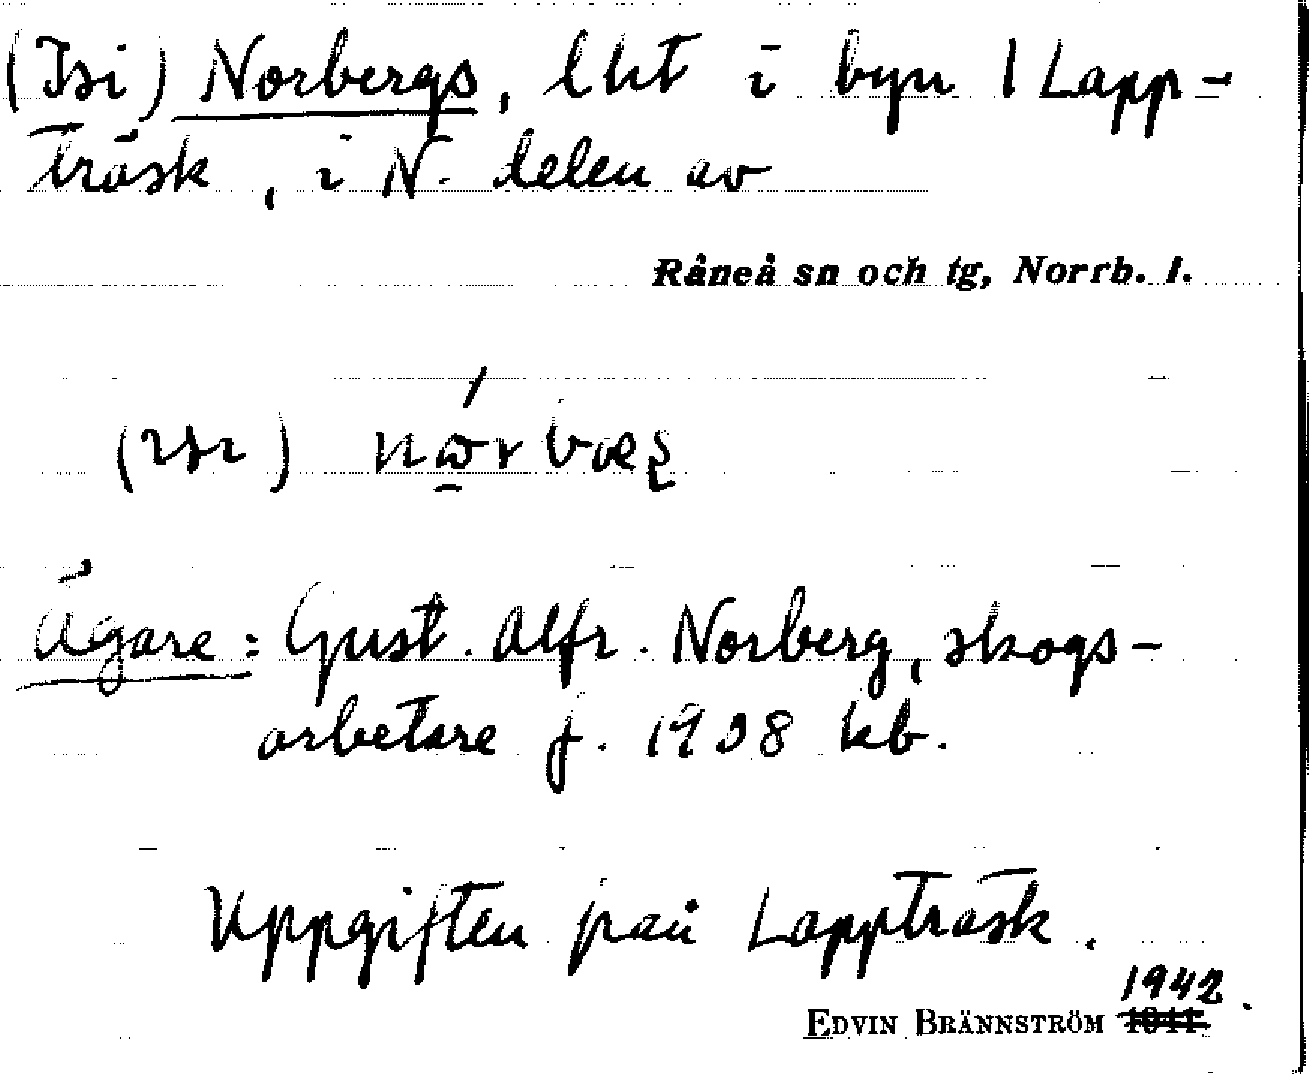 (Isi) Norbergs, lht i byn 1 Lapp-
träsk, i N. delen av
Råneå sn och tg, Norrb. l.
(ısı)
Ägare: Gust. Alfr. Norberg, skogs-
arbetare f. 1908 kb.
Uppgiften från Lappträsk.
1942.
EDVIN BRÄNNSTRÖM 1941.